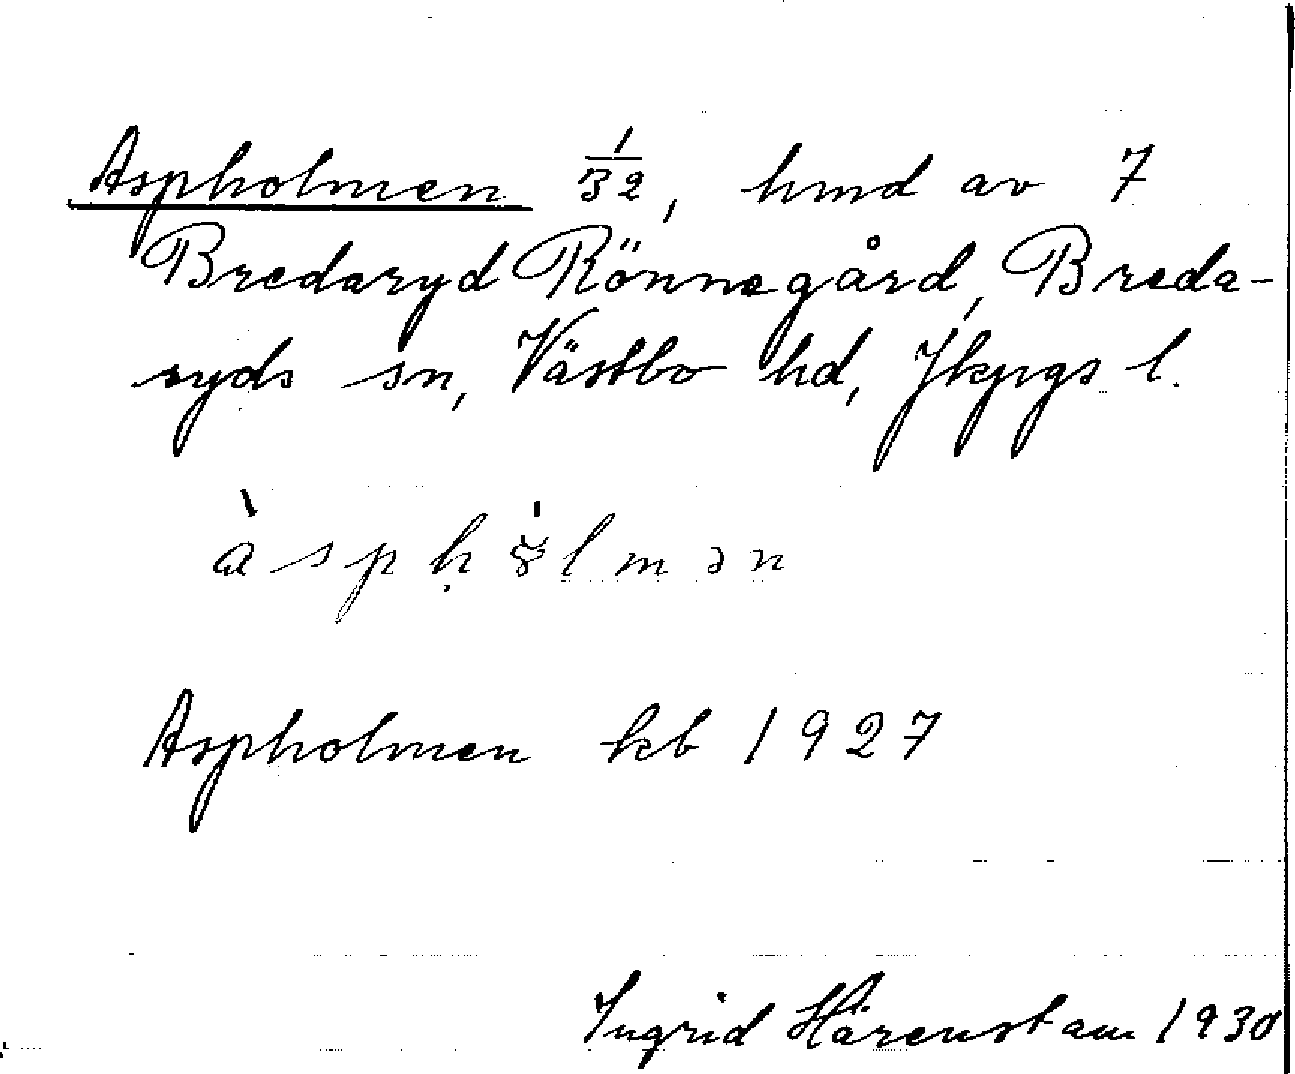 Aspholmen 1/32, hmd av 7
Bredaryd Rönnegård, Breda-
ryds sn, Västbo hd, Jkpgs l.
Aspholmen kb 1927
Ingrid Härenstam 1930